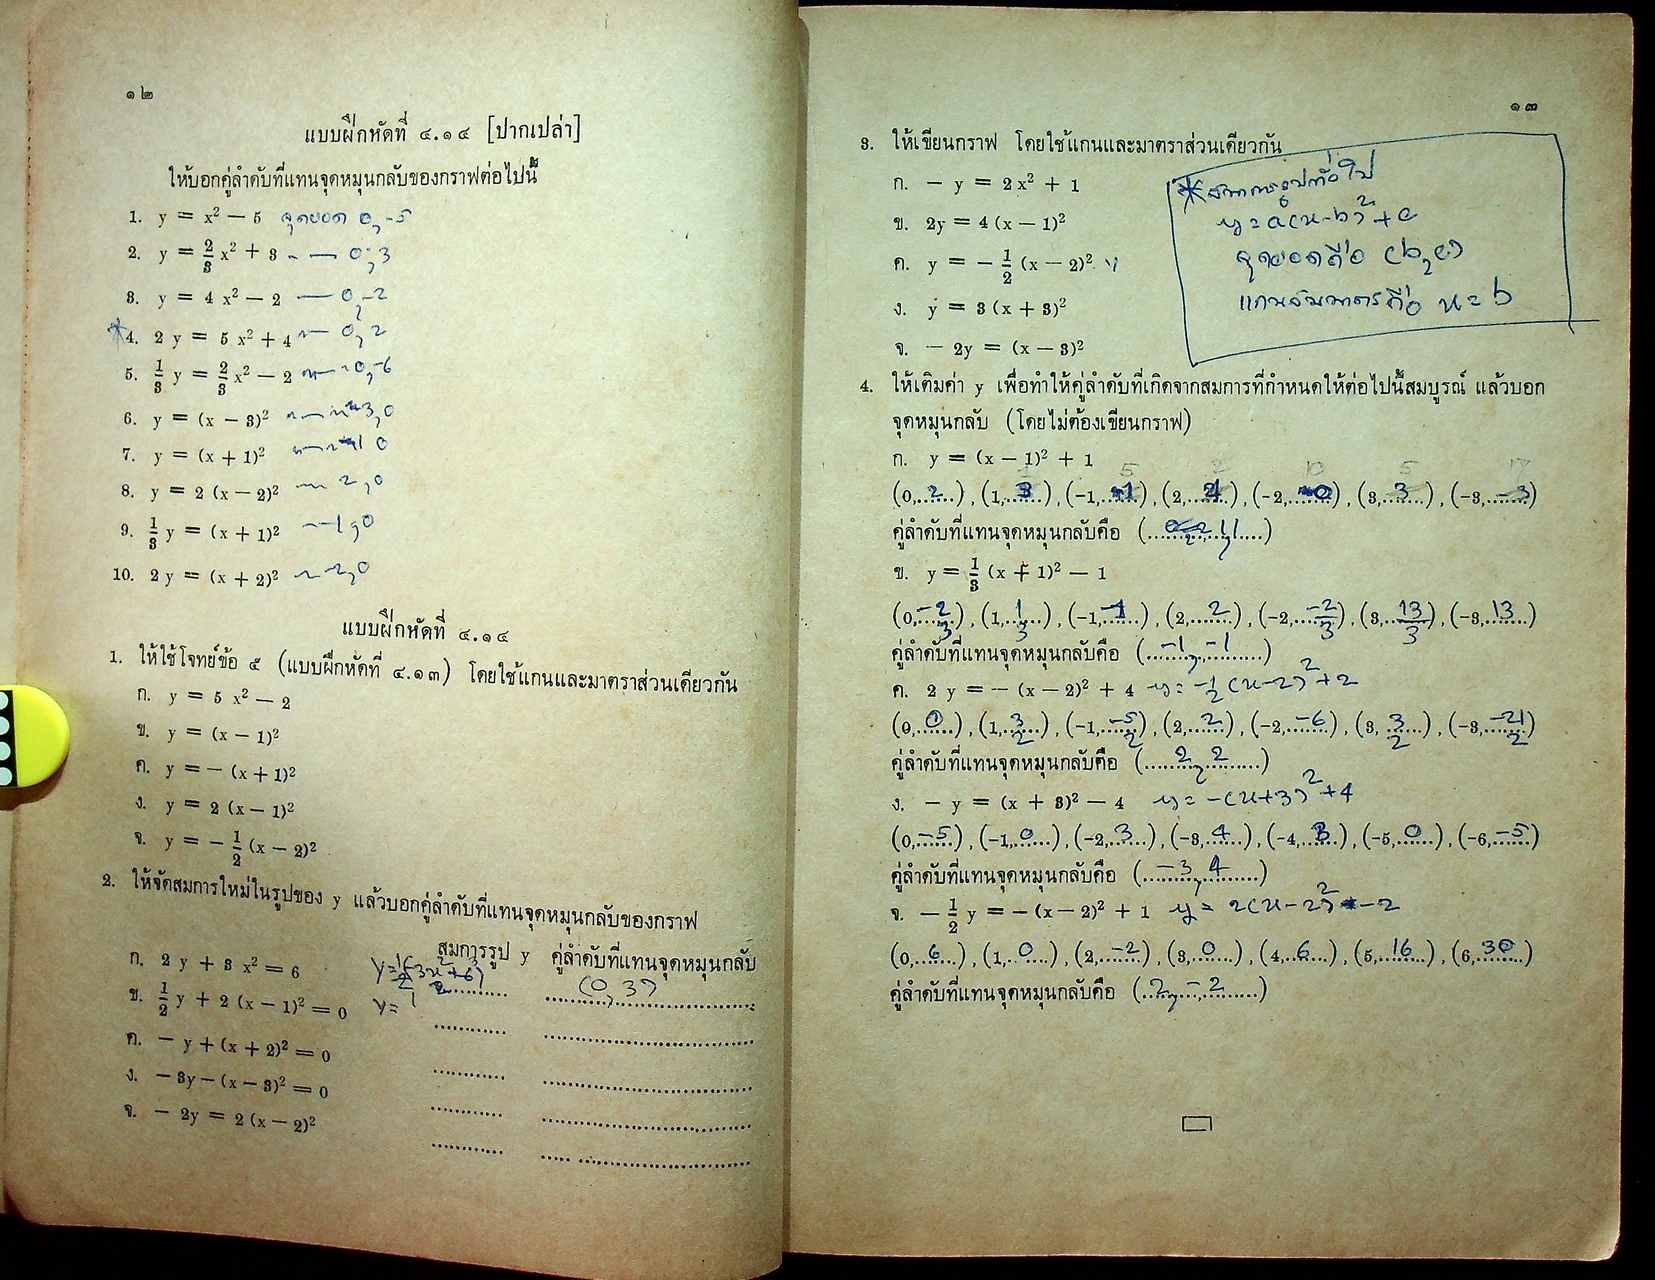 ๑๒
แบบฝึกหัดที่ ๔.๑๔ [ปากเปล่า]
ให้บอกคู่ลำดับที่แทนจุดหมุนกลับของกราฟต่อไปนี้
1. y = x² − 5 จุดยอด 0,-5
2. y = 2/3 x² + 3 — 0,3
3. y = 4 x² − 2 — 0,-2
*4. 2 y = 5 x² + 4 — 0,2
5. 1/3 y = 2/3 x² − 2 — 0,-6
6. y = (x − 3)² — 3,0
7. y = (x + 1)² — -1 0
8. y = 2 (x − 2)² — 2,0
9. 1/3 y = (x + 1)² — -1,0
10. 2 y = (x + 2)² — -2,0
แบบฝึกหัดที่ ๔.๑๔
1. ให้ใช้โจทย์ข้อ ๕ (แบบฝึกหัดที่ ๔.๑๓) โดยใช้แกนและมาตราส่วนเดียวกัน
ก. y = 5 x² − 2
ข. y = (x − 1)²
ค. y = − (x + 1)²
ง. y = 2 (x − 1)²
จ. y = − 1/2 (x − 2)²
2. ให้จัดสมการใหม่ในรูปของ y แล้วบอกคู่ลำดับที่แทนจุดหมุนกลับของกราฟ
สมการรูป y คู่ลำดับที่แทนจุดหมุนกลับ
ก. 2 y + 3 x² = 6 y = 1/2(-3x²+6) (0,3)
ข. 1/2 y + 2 (x − 1)² = 0 y =
ค. − y + (x + 2)² = 0
ง. − 3y − (x − 3)² = 0
จ. − 2y = 2 (x − 2)²
๑๓
3. ให้เขียนกราฟ โดยใช้แกนและมาตราส่วนเดียวกัน
ก. − y = 2 x² + 1
ข. 2y = 4 (x − 1)²
ค. y = − 1/2 (x − 2)²
ง. y = 3 (x + 3)²
จ. − 2y = (x − 3)²
*สมการรูปทั่วไป
y = a(x-b)² + c
จุดยอดคือ (b,c)
แกนสมมาตรคือ x = b
4. ให้เติมค่า y เพื่อทำให้คู่ลำดับที่เกิดจากสมการที่กำหนดให้ต่อไปนี้สมบูรณ์ แล้วบอก
จุดหมุนกลับ (โดยไม่ต้องเขียนกราฟ)
ก. y = (x − 1)² + 1
5 2 10 5 17
(0,2), (1,3), (−1,-1), (2,4), (−2,0), (3,3), (−3,-3)
คู่ลำดับที่แทนจุดหมุนกลับคือ (1,1)
ข. y = 1/3 (x + 1)² − 1
(0,-2/3), (1,1/3), (−1,-1), (2,2), (−2,-2/3), (3,13/3), (−3,13)
คู่ลำดับที่แทนจุดหมุนกลับคือ (-1,-1)
ค. 2 y = − (x − 2)² + 4 y = -1/2(x-2)² + 2
(0,0), (1,3/2), (−1,-5/2), (2,2), (−2,-6), (3,3/2), (−3,-21/2)
คู่ลำดับที่แทนจุดหมุนกลับคือ (2,2)
ง. − y = (x + 3)² − 4 y = -(x+3)² + 4
(0,-5), (−1,0), (−2,3), (−3,4), (−4,3), (−5,0), (−6,-5)
คู่ลำดับที่แทนจุดหมุนกลับคือ (-3,4)
จ. − 1/2 y = − (x − 2)² + 1 y = 2(x-2)² - 2
(0,6), (1,0), (2,-2), (3,0), (4,6), (5,16), (6,30)
คู่ลำดับที่แทนจุดหมุนกลับคือ (2,-2)